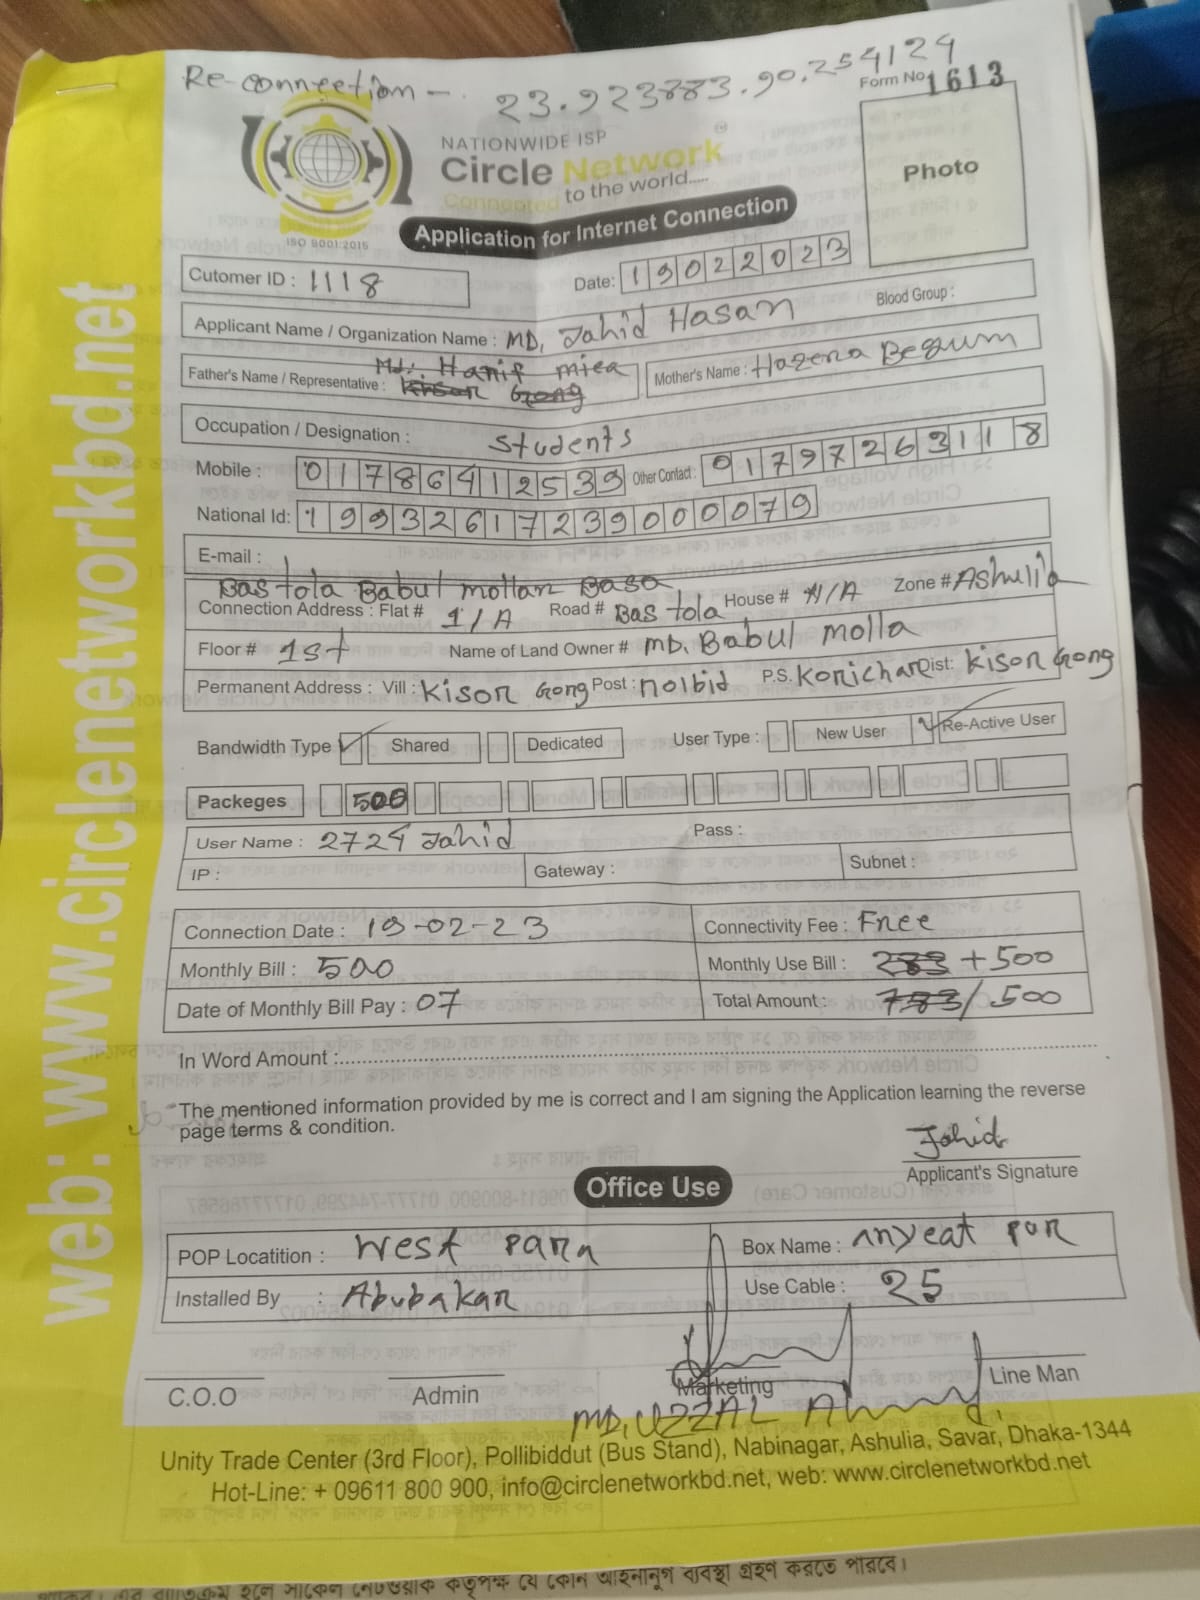 Re-connection - 23.923883.90.254124
Form No 1613
NATIONWIDE ISP
Circle Network
Connected to the world.....
ISO 9001:2015
Application for Internet Connection
Photo
Cutomer ID : 1118
Date: 19022023
Applicant Name / Organization Name : MD, Jahid Hasan
Blood Group :
Md. Hanif miea
Father's Name / Representative :
Mother's Name : Hazena Begum
Occupation / Designation : Students
Mobile : 01786412539 Other Contact : 01797263118
National Id: 19932617239000079
E-mail :
Bas tola Babul mollan Basa
Connection Address : Flat # 1/A Road # Bas tola House # N/A Zone # Ashulia
Floor # 1st Name of Land Owner # MD, Babul molla
Permanent Address : Vill : Kison Gong Post : nolbid P.S. Konichar Dist: Kison Gong
Bandwidth Type Shared Dedicated User Type : New User Re-Active User
Packeges 500
User Name : 2724 Jahid Pass :
IP : Gateway : Subnet :
Connection Date : 19-02-23 Connectivity Fee : Free
Monthly Bill : 500 Monthly Use Bill : 283 + 500
Date of Monthly Bill Pay : 07 Total Amount : 783/500
In Word Amount :
The mentioned information provided by me is correct and I am signing the Application learning the reverse
page terms & condition.
Jahid
Applicant's Signature
Office Use
POP Locatition : West Para Box Name : anyeat pur
Installed By : Abubakar Use Cable : 25
C.O.O Admin Marketing Line Man
MD, UZZAL
Unity Trade Center (3rd Floor), Pollibiddut (Bus Stand), Nabinagar, Ashulia, Savar, Dhaka-1344
Hot-Line: + 09611 800 900, info@circlenetworkbd.net, web: www.circlenetworkbd.net
web: www.circlenetworkbd.net
হলে সার্কেল নেটওয়ার্ক কতৃপক্ষ যে কোন আইনানুগ ব্যবস্থা গ্রহণ করতে পারবে।